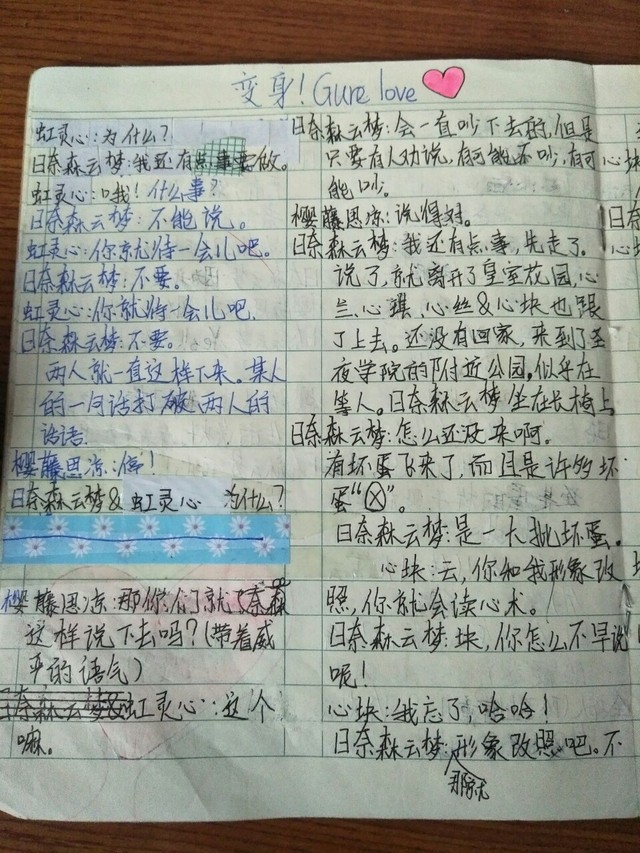 变身！Gure love
虹灵心：为什么？
日奈森云梦：我还有点事要做。
虹灵心：哦！什么事？
日奈森云梦：不能说。
虹灵心：你就待一会儿吧。
日奈森云梦：不要。
虹灵心：你就待一会儿吧．
日奈森云梦：不要．
两人就一直这样下来。某人
的一句话打破两人的
话语．
樱藤思凉：停！
日奈森云梦&虹灵心 为什么？
樱藤思凉：那你们就
这样说下去吗？（带着威
严的语气）
虹灵心：这个
嘛。
日奈森云梦：会一直吵下去的，但是
只要有人劝说，有可能不吵，有可
能吵。
樱藤思凉：说得对。
日奈森云梦：我还有点事，先走了。
说了，就离开了皇室花园，心
兰、心琪、心丝&心块也跟
了上去。还没有回家，来到了圣
夜学院的附近公园。似乎在
等人。日奈森云梦坐在长椅上
日奈森云梦：怎么还没来啊。
有坏蛋飞来了，而且是许多坏
蛋“ⓧ”。
日奈森云梦：是一大批坏蛋。
心块：云，你和我形象改
照，你就会读心术。
日奈森云梦：块，你怎么不早说
呢！
心块：我忘了，哈哈！
日奈森云梦：那就形象改照吧。不